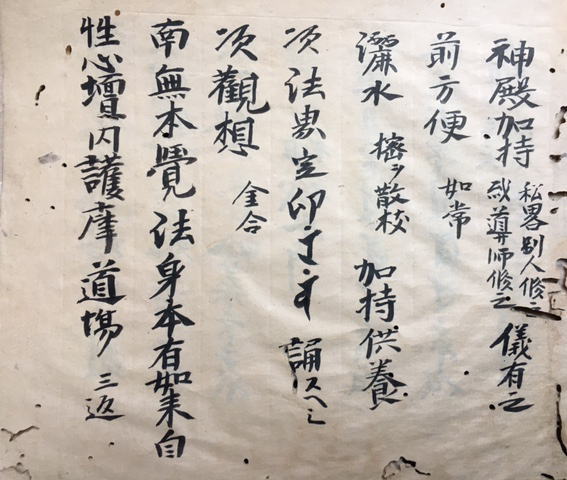 神殿加持 私畧別人修之 或導師修之 儀有之
前方便 如常
灑水 散杖 加持供養
次法界定印 誦スヘシ
次觀想 金合
南無本覺法身本有如来自
性心壇内護摩道場 三返